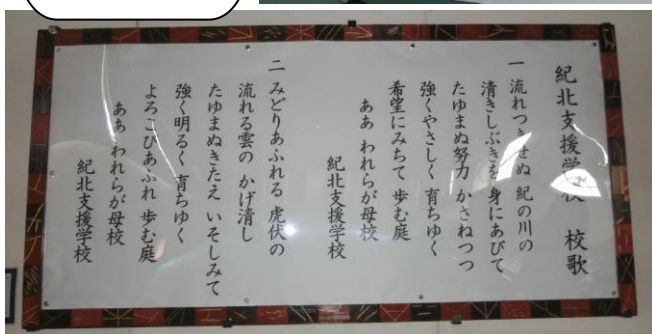 紀北支援学校 校歌
一 流れつきせぬ 紀の川の
清きしぶきを 身にあびて
たゆまぬ努力 かさねつつ
強くやさしく 育ちゆく
希望にみちて 歩む庭
ああ われらが母校
紀北支援学校
二 みどりあふれる 虎伏の
流れる雲の かげ清し
たゆまぬきたえ いそしみて
強く明るく 育ちゆく
よろこびあふれ 歩む庭
ああ われらが母校
紀北支援学校